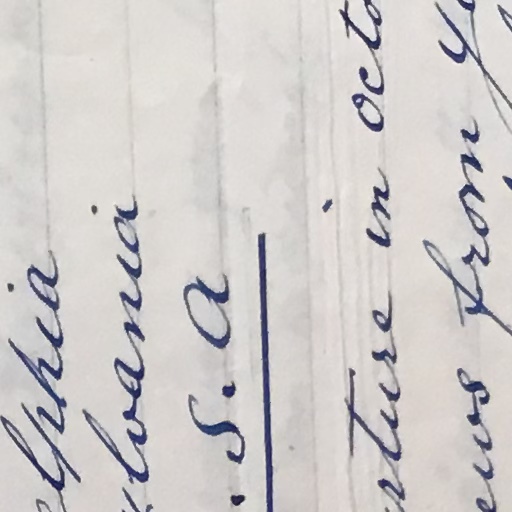 elphia
lvania
. S. A
rture in octo
ews from yo